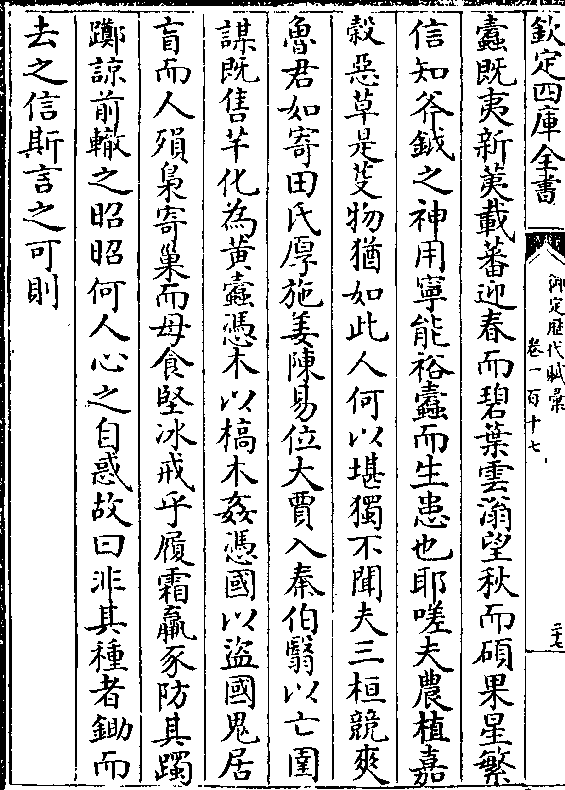 欽定四庫全書
御定歴代賦彙
卷一百十七
二十七
蠧既夷新荑載蕃迎春而碧葉雲滃望秋而碩果星繁
信知斧鉞之神用寧能裕蠧而生患也耶嗟夫農植嘉
穀惡草是芟物猶如此人何以堪獨不聞夫三桓競爽
魯君如寄田氏厚施姜陳易位大賈入秦伯翳以亡園
謀既售芊化為黄蠧憑木以槁木姦憑國以盜國鬼居
肓而人殞梟寄巢而母食堅冰戒乎履霜羸豕防其躅
躑諒前轍之昭昭何人心之自惑故曰非其種者鋤而
去之信斯言之可則